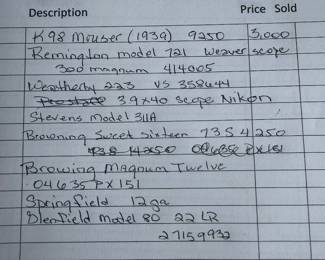 Description Price Sold
K98 Mouser (1939) 9250 3,000
Remington model 721 Weaver scope
300 magnum 414005
Weatherby 223 VS 358644
39x40 scope Nikon
Stevens Model 311A
Browning Sweet Sixteen 73S4250
Browing Magnum Twelve
04635PX151
Springfield 12ga
Glenfield Model 80 22LR
27159932